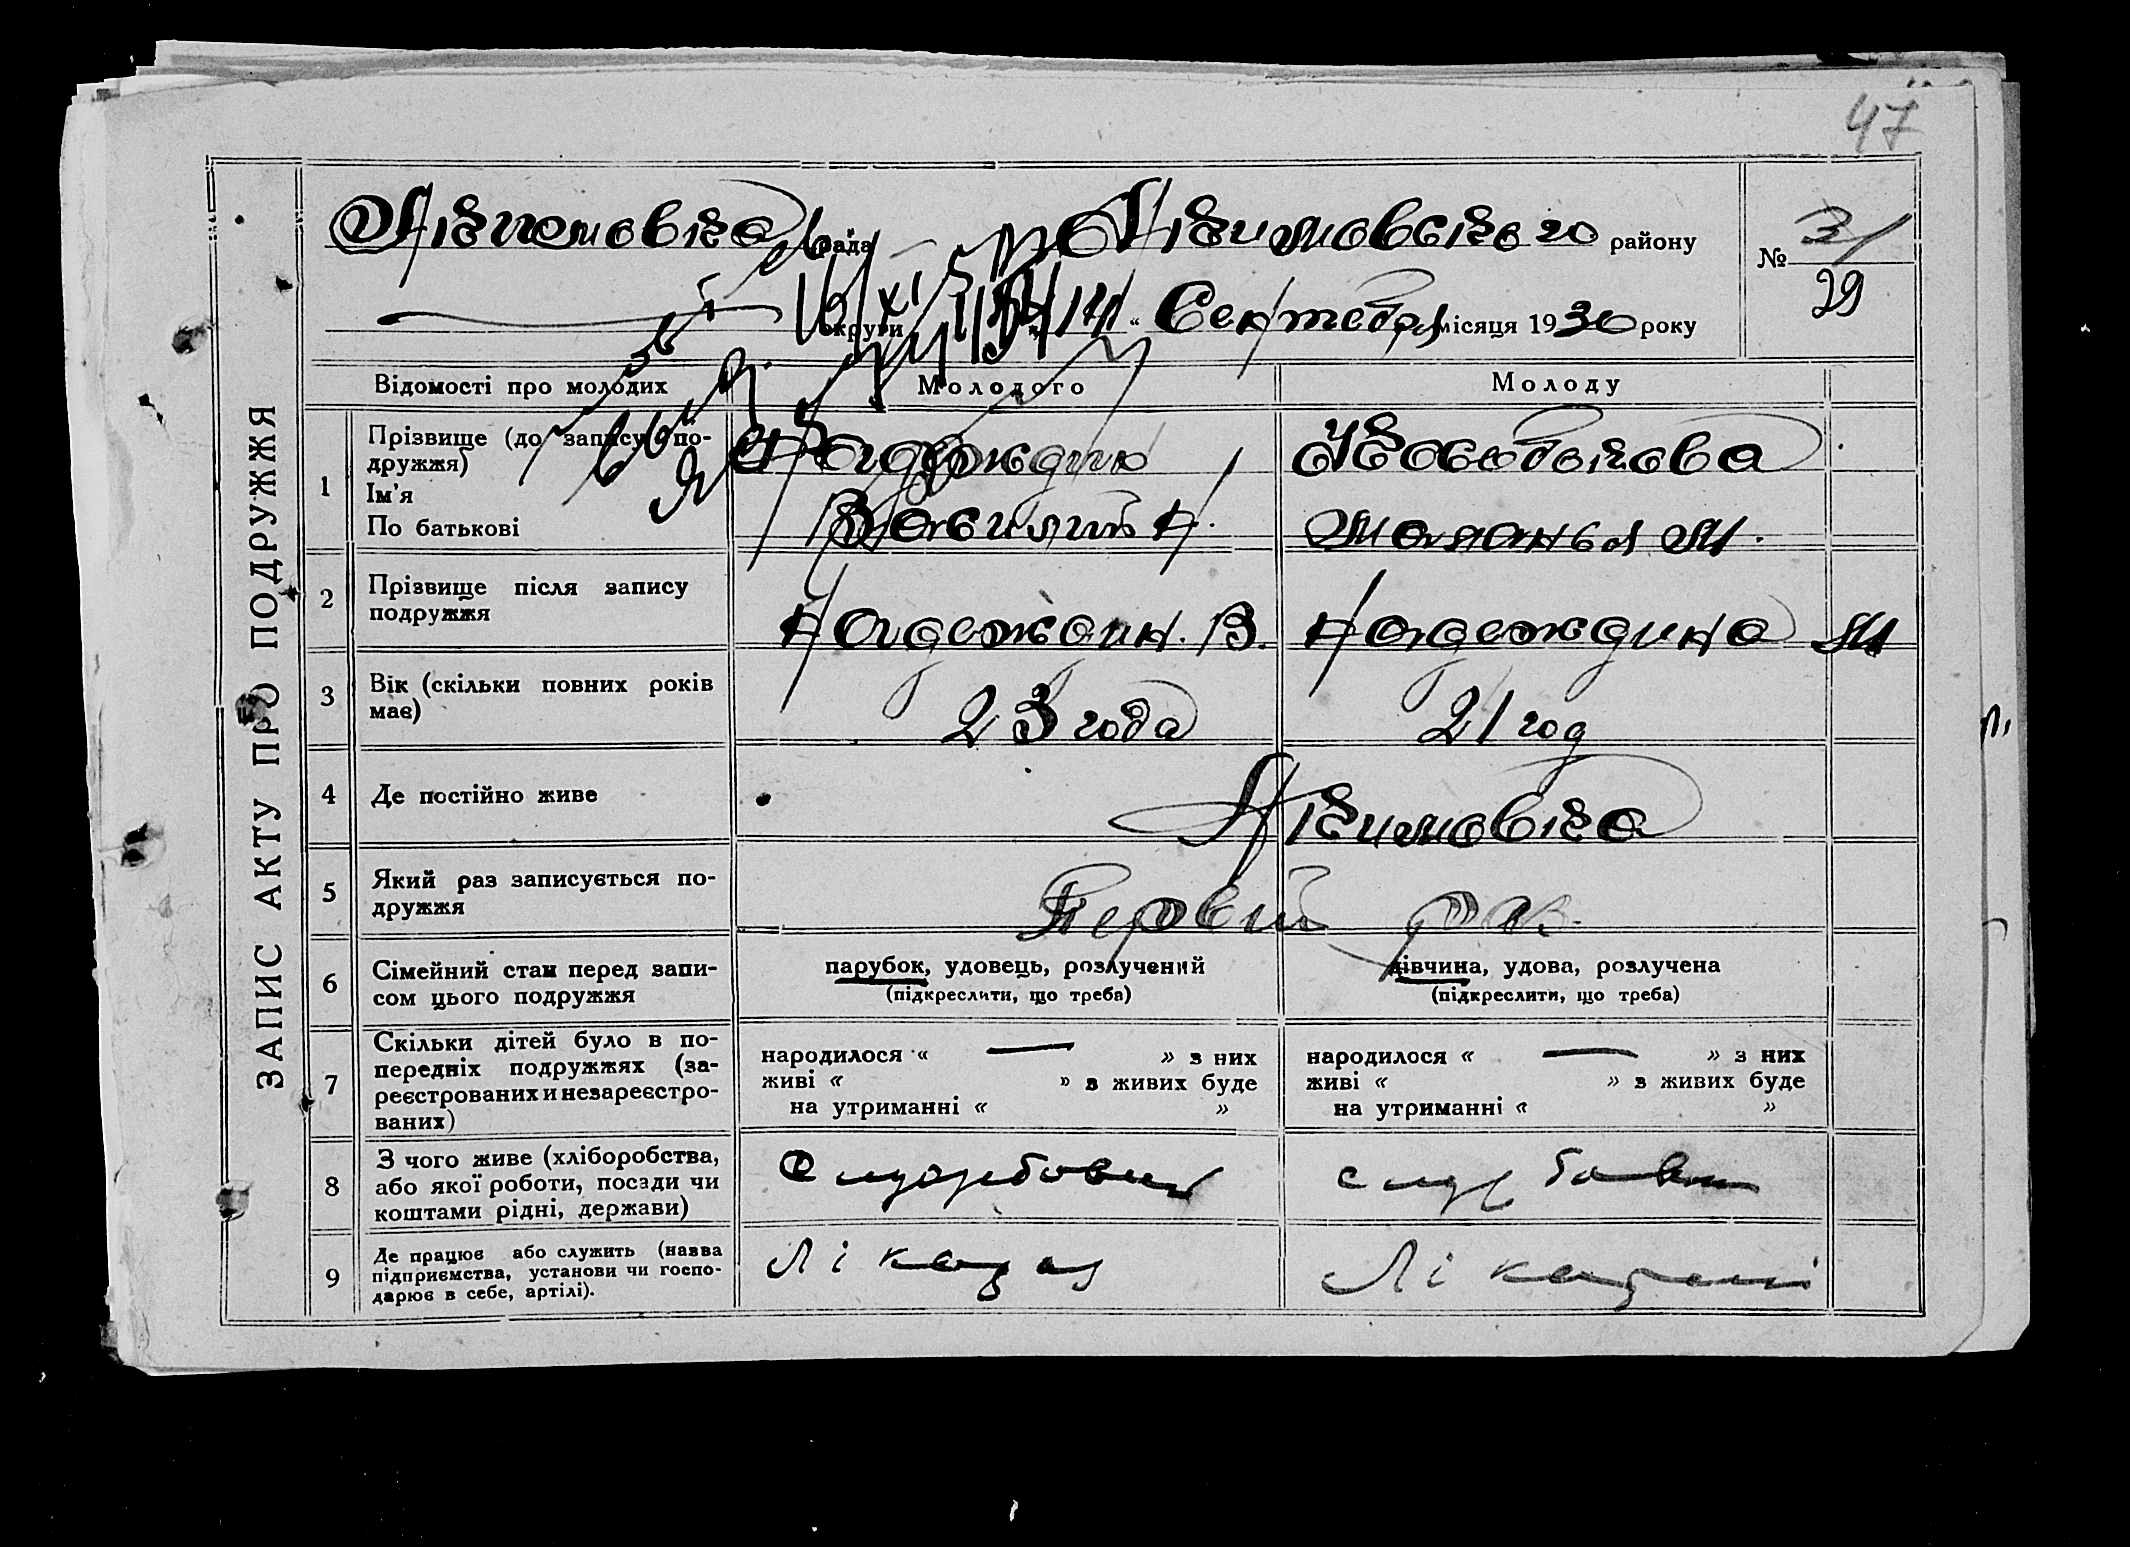 47
Акимовка рада Акимовского району
№ 31/29
округи « Сентября місяця 1930 року
Відомості про молодих Молодого Молоду
ЗАПИС АКТУ ПРО ПОДРУЖЖЯ
1 Прізвище (до запису по-
дружжя)
Ім'я
По батькові
Василий А.
Маланья М.
2 Прізвище після запису
подружжя
Надеждин. В. Надеждина М
3 Вік (скільки повних років
має)
23 года 21 год
4 Де постійно живе
Акимовка
5 Який раз записується по-
дружжя
Первий раз.
6 Сімейний стан перед запи-
сом цього подружжя
парубок, удовець, розлучений
(підкреслити, що треба)
дівчина, удова, розлучена
(підкреслити, що треба)
7 Скільки дітей було в по-
передніх подружжях (за-
реєстрованих и незареєстро-
ваних)
народилося « — » з них
живі « » з живих буде
на утриманні « »
народилося « — » з них
живі « » з живих буде
на утриманні « »
8 З чого живе (хліборобства,
або якої роботи, посади чи
коштами рідні, держави)
Службовиц
службовиц
9 Де працює або служить (назва
підприємства, установи чи госпо-
дарює в себе, артілі).